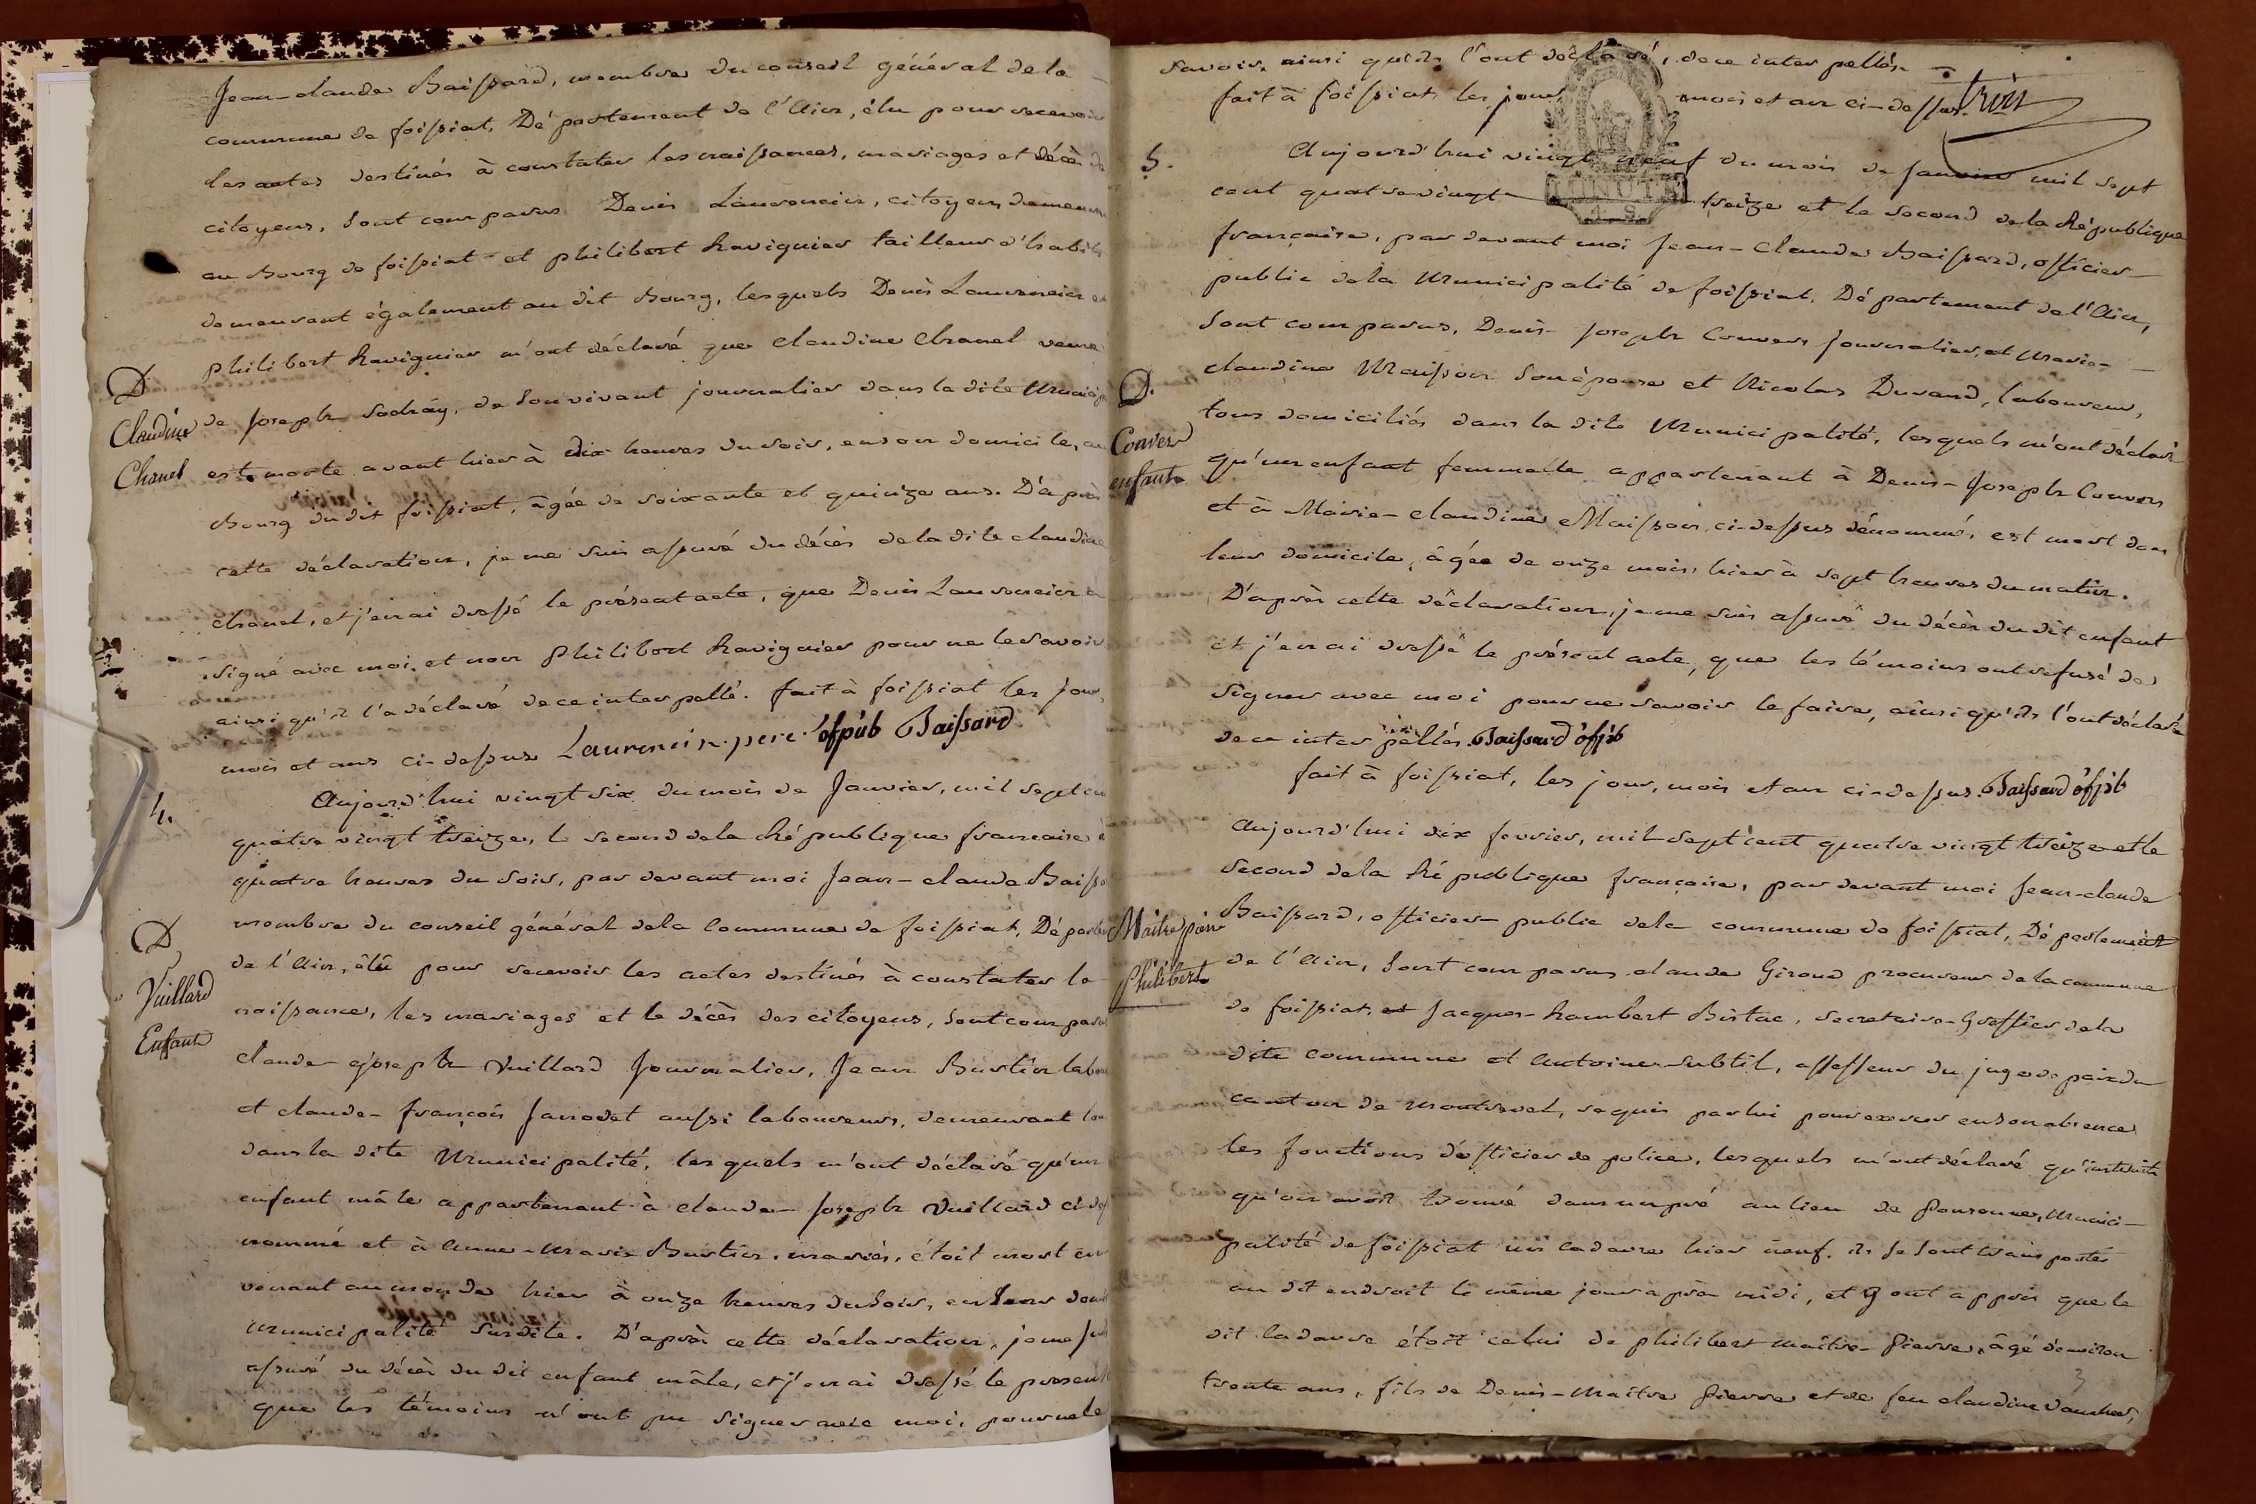 Jean-claude Baissard, membre du conseil général de la
commune de foissiat, Département de l'Ain, élu pour recevoir
les actes destinés à constater les naissances, mariages et décès de
citoyens, sont comparus Denis Laurencin, citoyen, demeurant
au Bourg de foissiat et philibert Raviguier tailleur d'habits
demeurant également au dit Bourg, lesquels Denis Laurencin et
D
philibert Raviguier m'ont déclaré que claudine Chanel veuve
Claudine
de joseph, de son vivant journalier dans la dite
Chanel
est morte avant hier à dix heures du soir, en son domicile, au
Bourg du dit foissiat, âgée de soixante et quinze ans. D'après
cette déclaration, je me suis assuré du décès de la dite claudine
chanel, et j'en ai dressé le présent acte, que Denis Laurencin a
signé avec moi, et non philibert Raviguier pour ne le savoir
ainsi qu'il l'a déclaré de ce interpellé. fait à foissiat les jour,
mois et ans ci-dessus Laurencin pere ofpub Baissard
4.
Aujourd'hui vingt six du mois de Janvier, mil sept cent
quatre vingt treize, l second de la République française à
quatre heures du soir, par devant moi Jean-claude
D
membre du conseil général de la Commune de foissiat,
de l'Ain, élû pour recevoir les actes destinés à constater le
Vuillard
naissance, les mariages et le décès des citoyens, sont
Enfant
claude-joseph Vuillard journalier, Jean Bustin
et claude-françois Janodet aussi laboureurs, demeurant
dans la dite Municipalité, lesquels m'ont déclaré qu'un
enfant mâle appartenant à claude-joseph Vuillard
nommé et à anne-marie Bustin, mariés, étoit mort en
venant au monde hier à onze heures du soir, en leur
municipalité susdite. D'après cette déclaration, je me suis
assuré du décès du dit enfant mâle, et j'en ai dressé le présent
que les témoins n'ont pu signer avec moi, pour ne le
savoir, ainsi qu'ils l'ont déclaré, de ce interpellés.
fait à foissiat les jour mois et an ci-dessus. trois
MINUTE
4 S
5.
Aujourd'hui vingt neuf du mois de janvier mil sept
cent quatre vingt treize et le second de la République
française, par devant moi Jean-Claude Baissard, officier
public de la Municipalité de foissiat, Département de l'Ain,
sont comparus, Denis-joseph Convers journalier, et Marie-
D.
claudine Maisson son épouse et Nicolas Durand, laboureur,
Convers
tous domiciliés dans la dite Municipalité, lesquels m'ont déclaré
enfant
qu'un enfant femmelle appartenant à Denis-joseph Convers
et à Marie-claudine Maisson, ci-dessus dénommés, est mort dans
leur domicile, âgée de onze mois, hier à sept heures du matin.
D'après cette déclaration, je me suis assuré du décès du dit enfant
et j'en ai dressé le présent acte, que les témoins ont refusé de
signer avec moi pour ne savoir le faire, ainsi qu'ils l'ont déclaré
de ce interpellés. Baissard ofpb
fait à foissiat, les jour, mois et an ci-dessus. Baissard ofpb
Aujourd'hui dix fevrier, mil sept cent quatre vingt treize et le
second de la République française, par devant moi Jean-claude
Maitrepierre
Baissard, officier public de la commune de foissiat, Département
Philibert
de l'Ain, sont comparus claude Giroud procureur de la commune
de foissiat, et Jacques-Rambert Bistac, secretaire-Greffier de la
dite commune et antoine subtil, assesseur du juge de paix du
canton de montrevel, requis par lui pour exercer en son absence
les fonctions d'officier de police, lesquels m'ont déclaré qu'instruits
qu'on avoit trouvé dans un pré au lieu de, Munici-
palité de foissiat un cadavre hier neuf, ils se sont transportés
au dit endroit le même jour après midi, et y ont appris que le
dit cadavre étoit celui de philibert maitre-pierre, âgé d'environ
trente ans, fils de Denis-Maitre pierre et de feu claudine
3